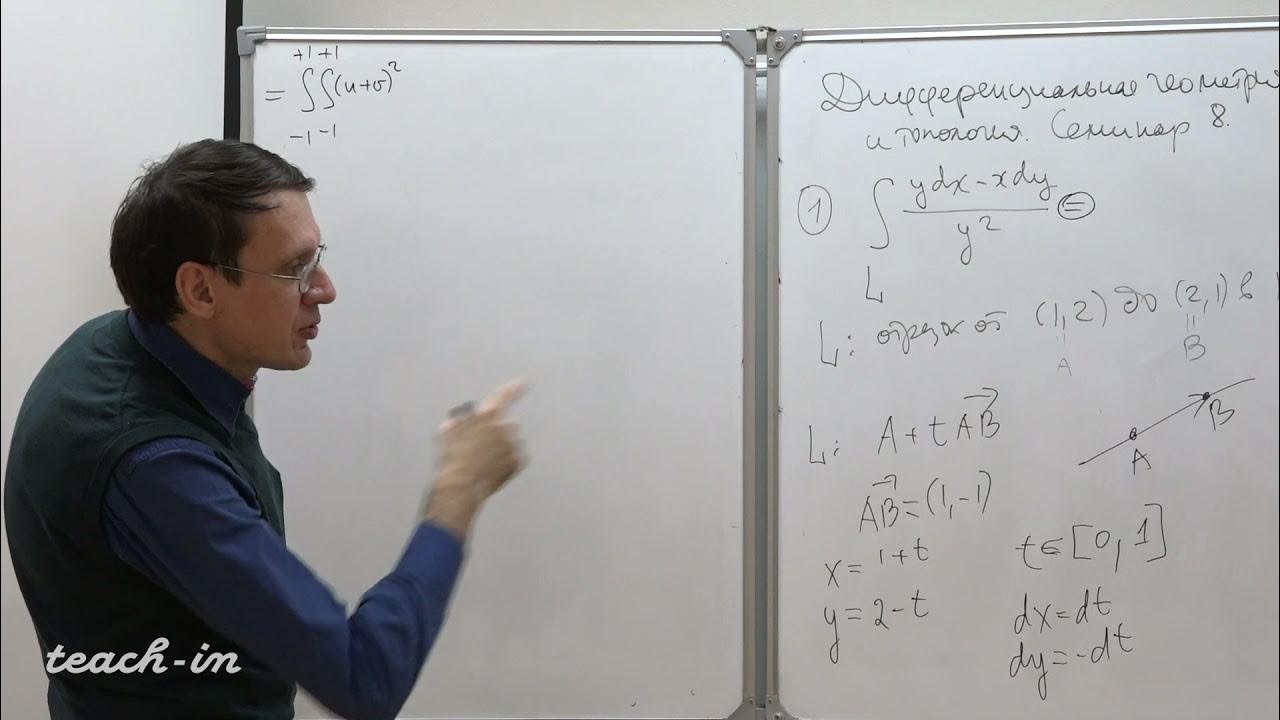 +1 +1
= ∫∫(u+v)²
-1 -1
Дифференциальная геометрия
и топология. Семинар 8.
① ∫ ydx-xdy / y² ⊜
L
L: отрезок от (1,2) до (2,1) в
A
B
L: A+tAB
AB=(1,-1)
x=1+t
y=2-t
A
B
t∈[0,1]
dx=dt
dy=-dt
teach-in